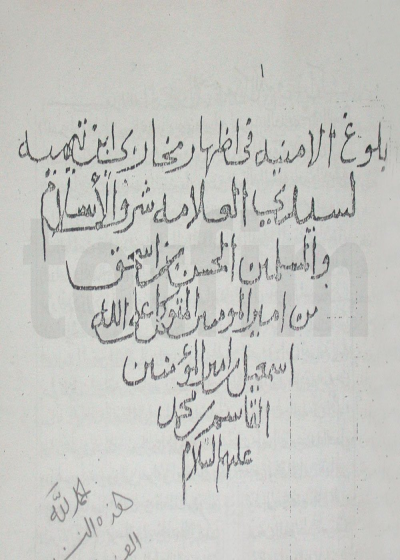 ١
بلوغ الامنيه في اظهار مخازي ابن تيميه
لسيدي العلامه شرف الأسلام
والمسلمين الحسن بن اسحق
بن امير المومنين المتوكل على الله
اسمعيل بن امير المؤمنين
القاسم بن محمد
عليهم السلام
الحمد لله
هذه